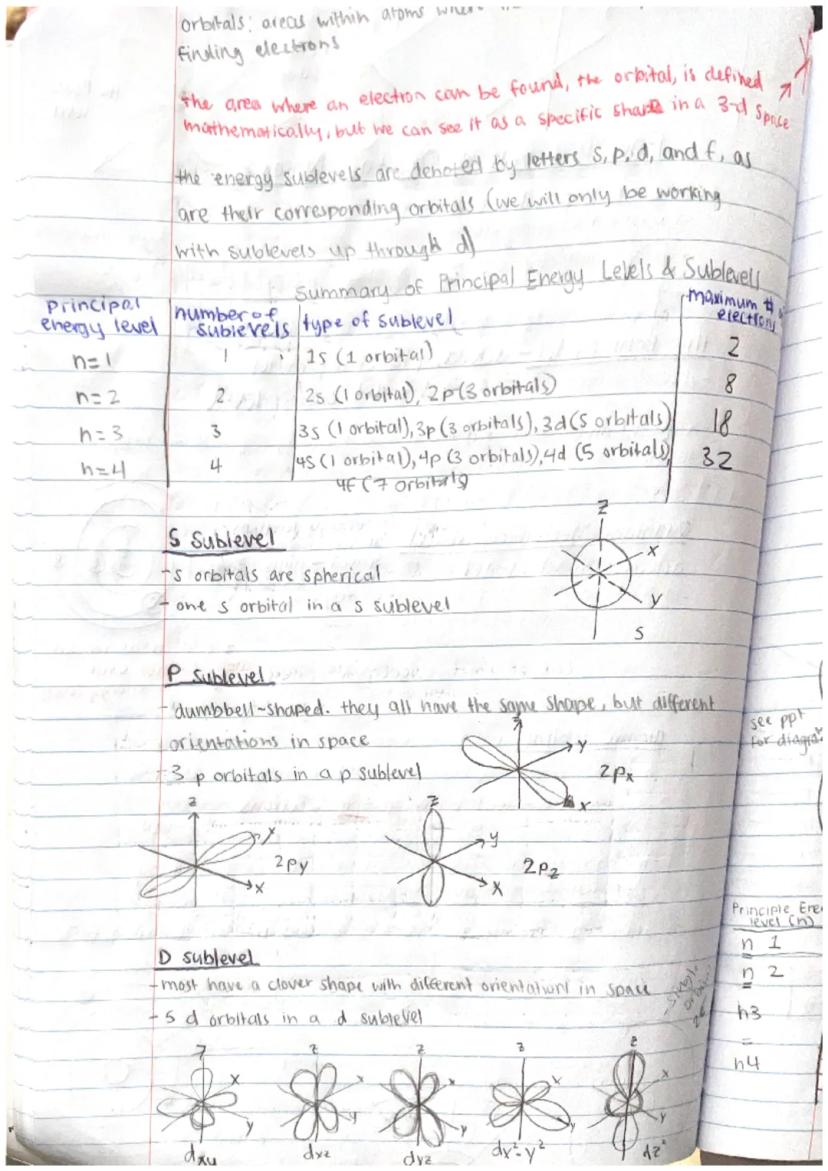 orbitals: areas within atoms where
finding electrons
the area where an electron can be found, the orbital, is defined
mathematically, but we can see it as a specific shape in a 3-d space
the energy sublevels are denoted by letters s, p, d, and f, as
are their corresponding orbitals (we will only be working
with sublevels up through d)
Summary of Principal Energy Levels & Sublevels
principal energy level | number of sublevels | type of sublevel | maximum # electrons
n=1 | 1 | 1s (1 orbital) | 2
n=2 | 2 | 2s (1 orbital), 2p (3 orbitals) | 8
n=3 | 3 | 3s (1 orbital), 3p (3 orbitals), 3d (5 orbitals) | 18
n=4 | 4 | 4s (1 orbital), 4p (3 orbitals), 4d (5 orbitals) | 32
4f (7 orbitals)
S Sublevel
-s orbitals are spherical
- one s orbital in a s sublevel
z
x
y
s
P Sublevel
- dumbbell-shaped. they all have the same shape, but different
orientations in space
- 3 p orbitals in a p sublevel
z
y
x
2px
z
y
x
2py
z
y
x
2pz
see ppt
for diagra
D sublevel
-most have a clover shape with different orientations in space
- 5 d orbitals in a d sublevel
z x y
dxy
z x y
dxz
z x y
dyz
z x y
dx²-y²
z x y
dz²
Principle Ene
level (n)
n 1
n 2
n3
n4